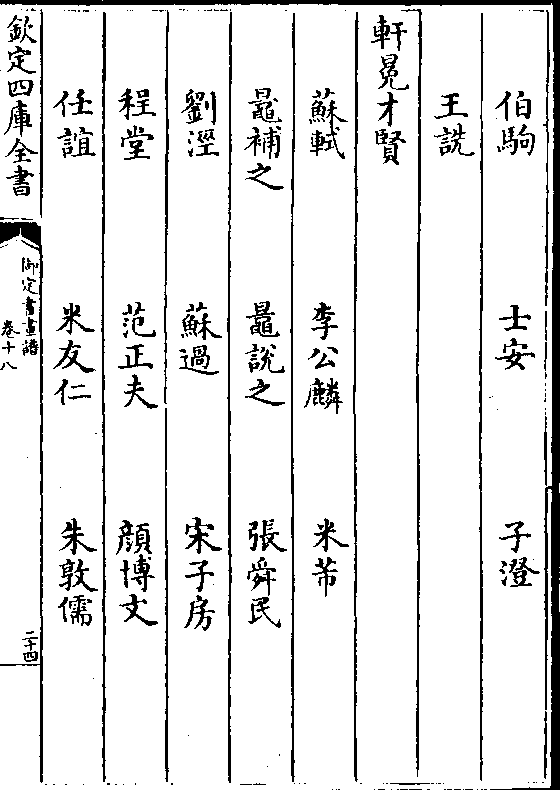 伯駒　士安　子澄
王詵
軒冕才賢
蘇軾　李公麟　米芾
鼂補之　鼂說之　張舜民
劉涇　蘇過　宋子房
程堂　范正夫　顔博文
任誼　米友仁　朱敦儒
欽定四庫全書　御定書畫譜　卷十八　二十四